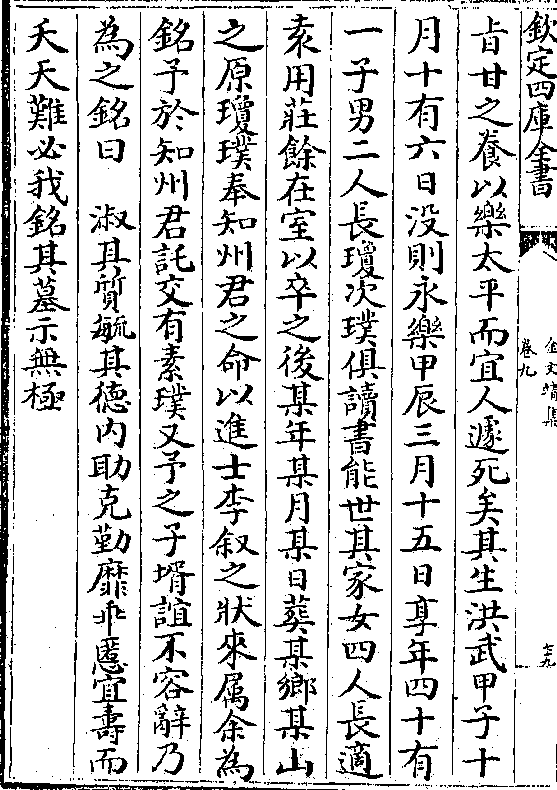 欽定四庫全書
金文靖集
卷九
㫖甘之養以樂太平而宜人遽死矣其生洪武甲子十
月十有六日没則永樂甲辰三月十五日享年四十有
一子男二人長瓊次璞俱讀書能世其家女四人長適
袁用莊餘在室以卒之後某年某月某日葬某鄉某山
之原瓊璞奉知州君之命以進士李叙之狀來属余為
銘予於知州君託交有素璞又予之子壻誼不容辭乃
為之銘曰　淑其質毓其德内助克勤靡乖慝宜壽而
夭天難必我銘其墓示無極